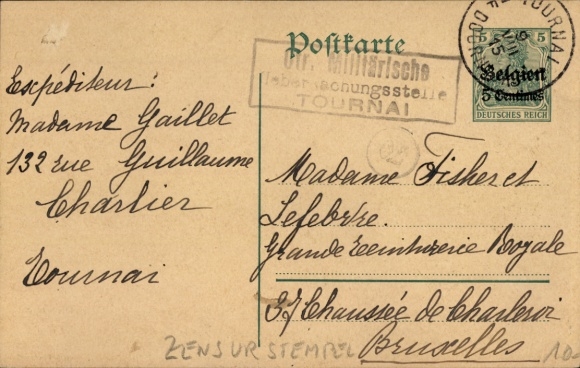 Postkarte
Off. Militärische
Ueberwachungsstelle
TOURNAI
TOURNAI
DOORNIK
9
VII
15
5 5
Belgien
5 Centimes
DEUTSCHES REICH
Expéditeur:
Madame Gaillet
132 rue Guillaume
Charlier
Tournai
Madame Fisher et
Lefebvre.
Grande Teinturerie Royale
37 Chaussée de Charleroi
Bruxelles
ZENSURSTEMPEL